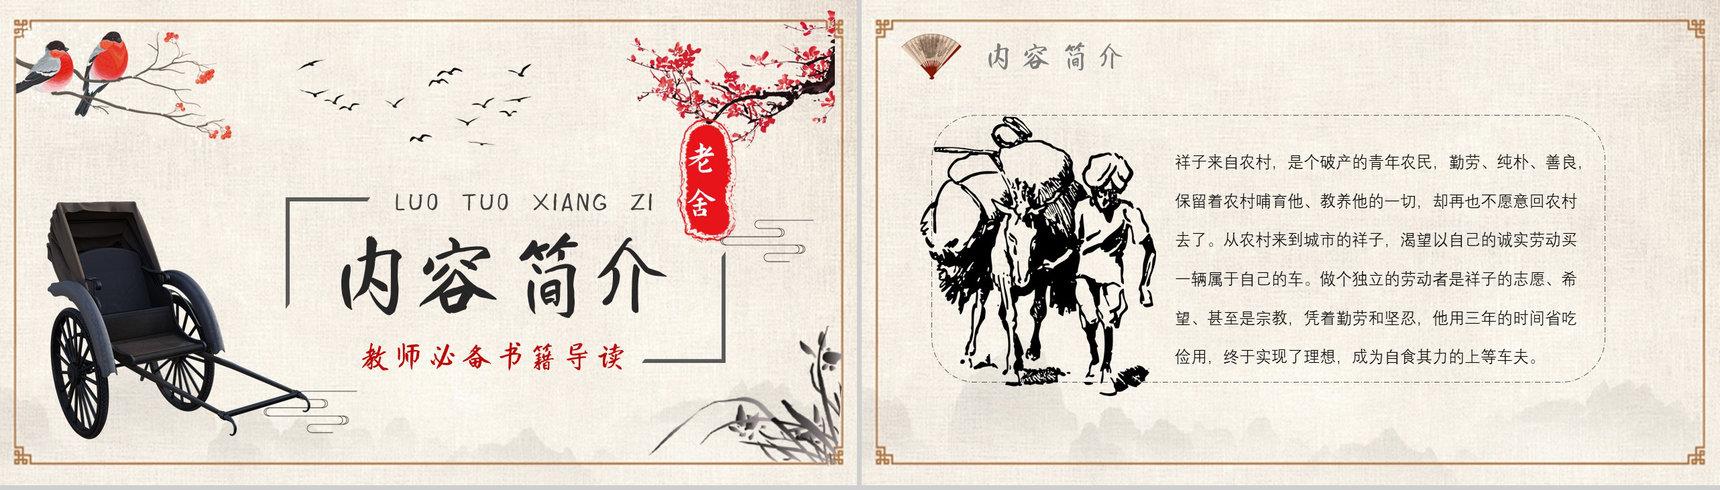 老舍
LUO TUO XIANG ZI
内容简介
教师必备书籍导读
内容简介
祥子来自农村，是个破产的青年农民，勤劳、纯朴、善良，
保留着农村哺育他、教养他的一切，却再也不愿意回农村
去了。从农村来到城市的祥子，渴望以自己的诚实劳动买
一辆属于自己的车。做个独立的劳动者是祥子的志愿、希
望、甚至是宗教，凭着勤劳和坚忍，他用三年的时间省吃
俭用，终于实现了理想，成为自食其力的上等车夫。